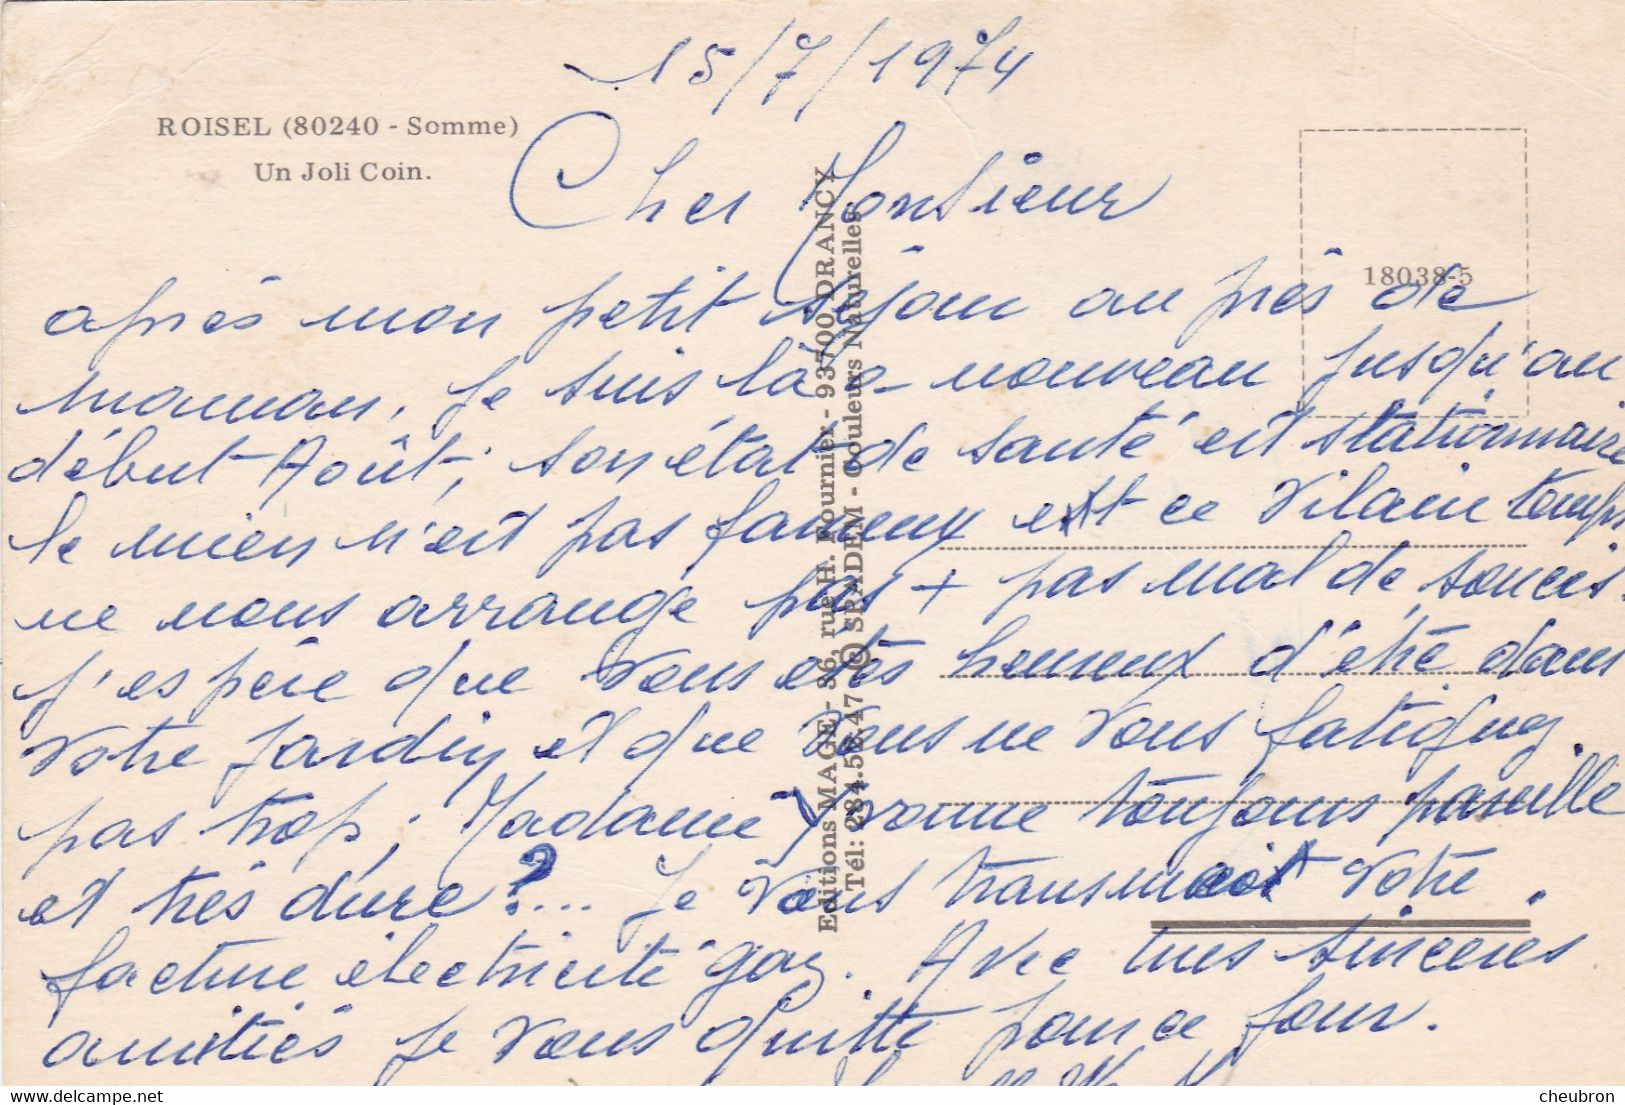 15/7/1974
ROISEL (80240 - Somme)
Un Joli Coin.
Cher Monsieur
18038-5
après mon petit séjour au près de
maman, je suis là à nouveau jusqu'au
début Août, son état de santé est stationnaire
le mien n'est pas fameux et ce vilain temps
ne nous arrange pas + pas mal de soucis.
j'espère que vous êtes heureux d'été dans
votre jardin et que vous ne vous fatiguez
pas trop; Madame Yvonne toujours pareille
et très dure ?... Je vous transmet votre
facture électricité gaz. Avec mes sincères
amitiés je vous quitte pour ce jour.
Editions MAGE - 36, rue H. Fournier - 93700 DRANCY
Tél: 284.58.47 © SPADEM - Couleurs Naturelles
delcampe.net
cheubron